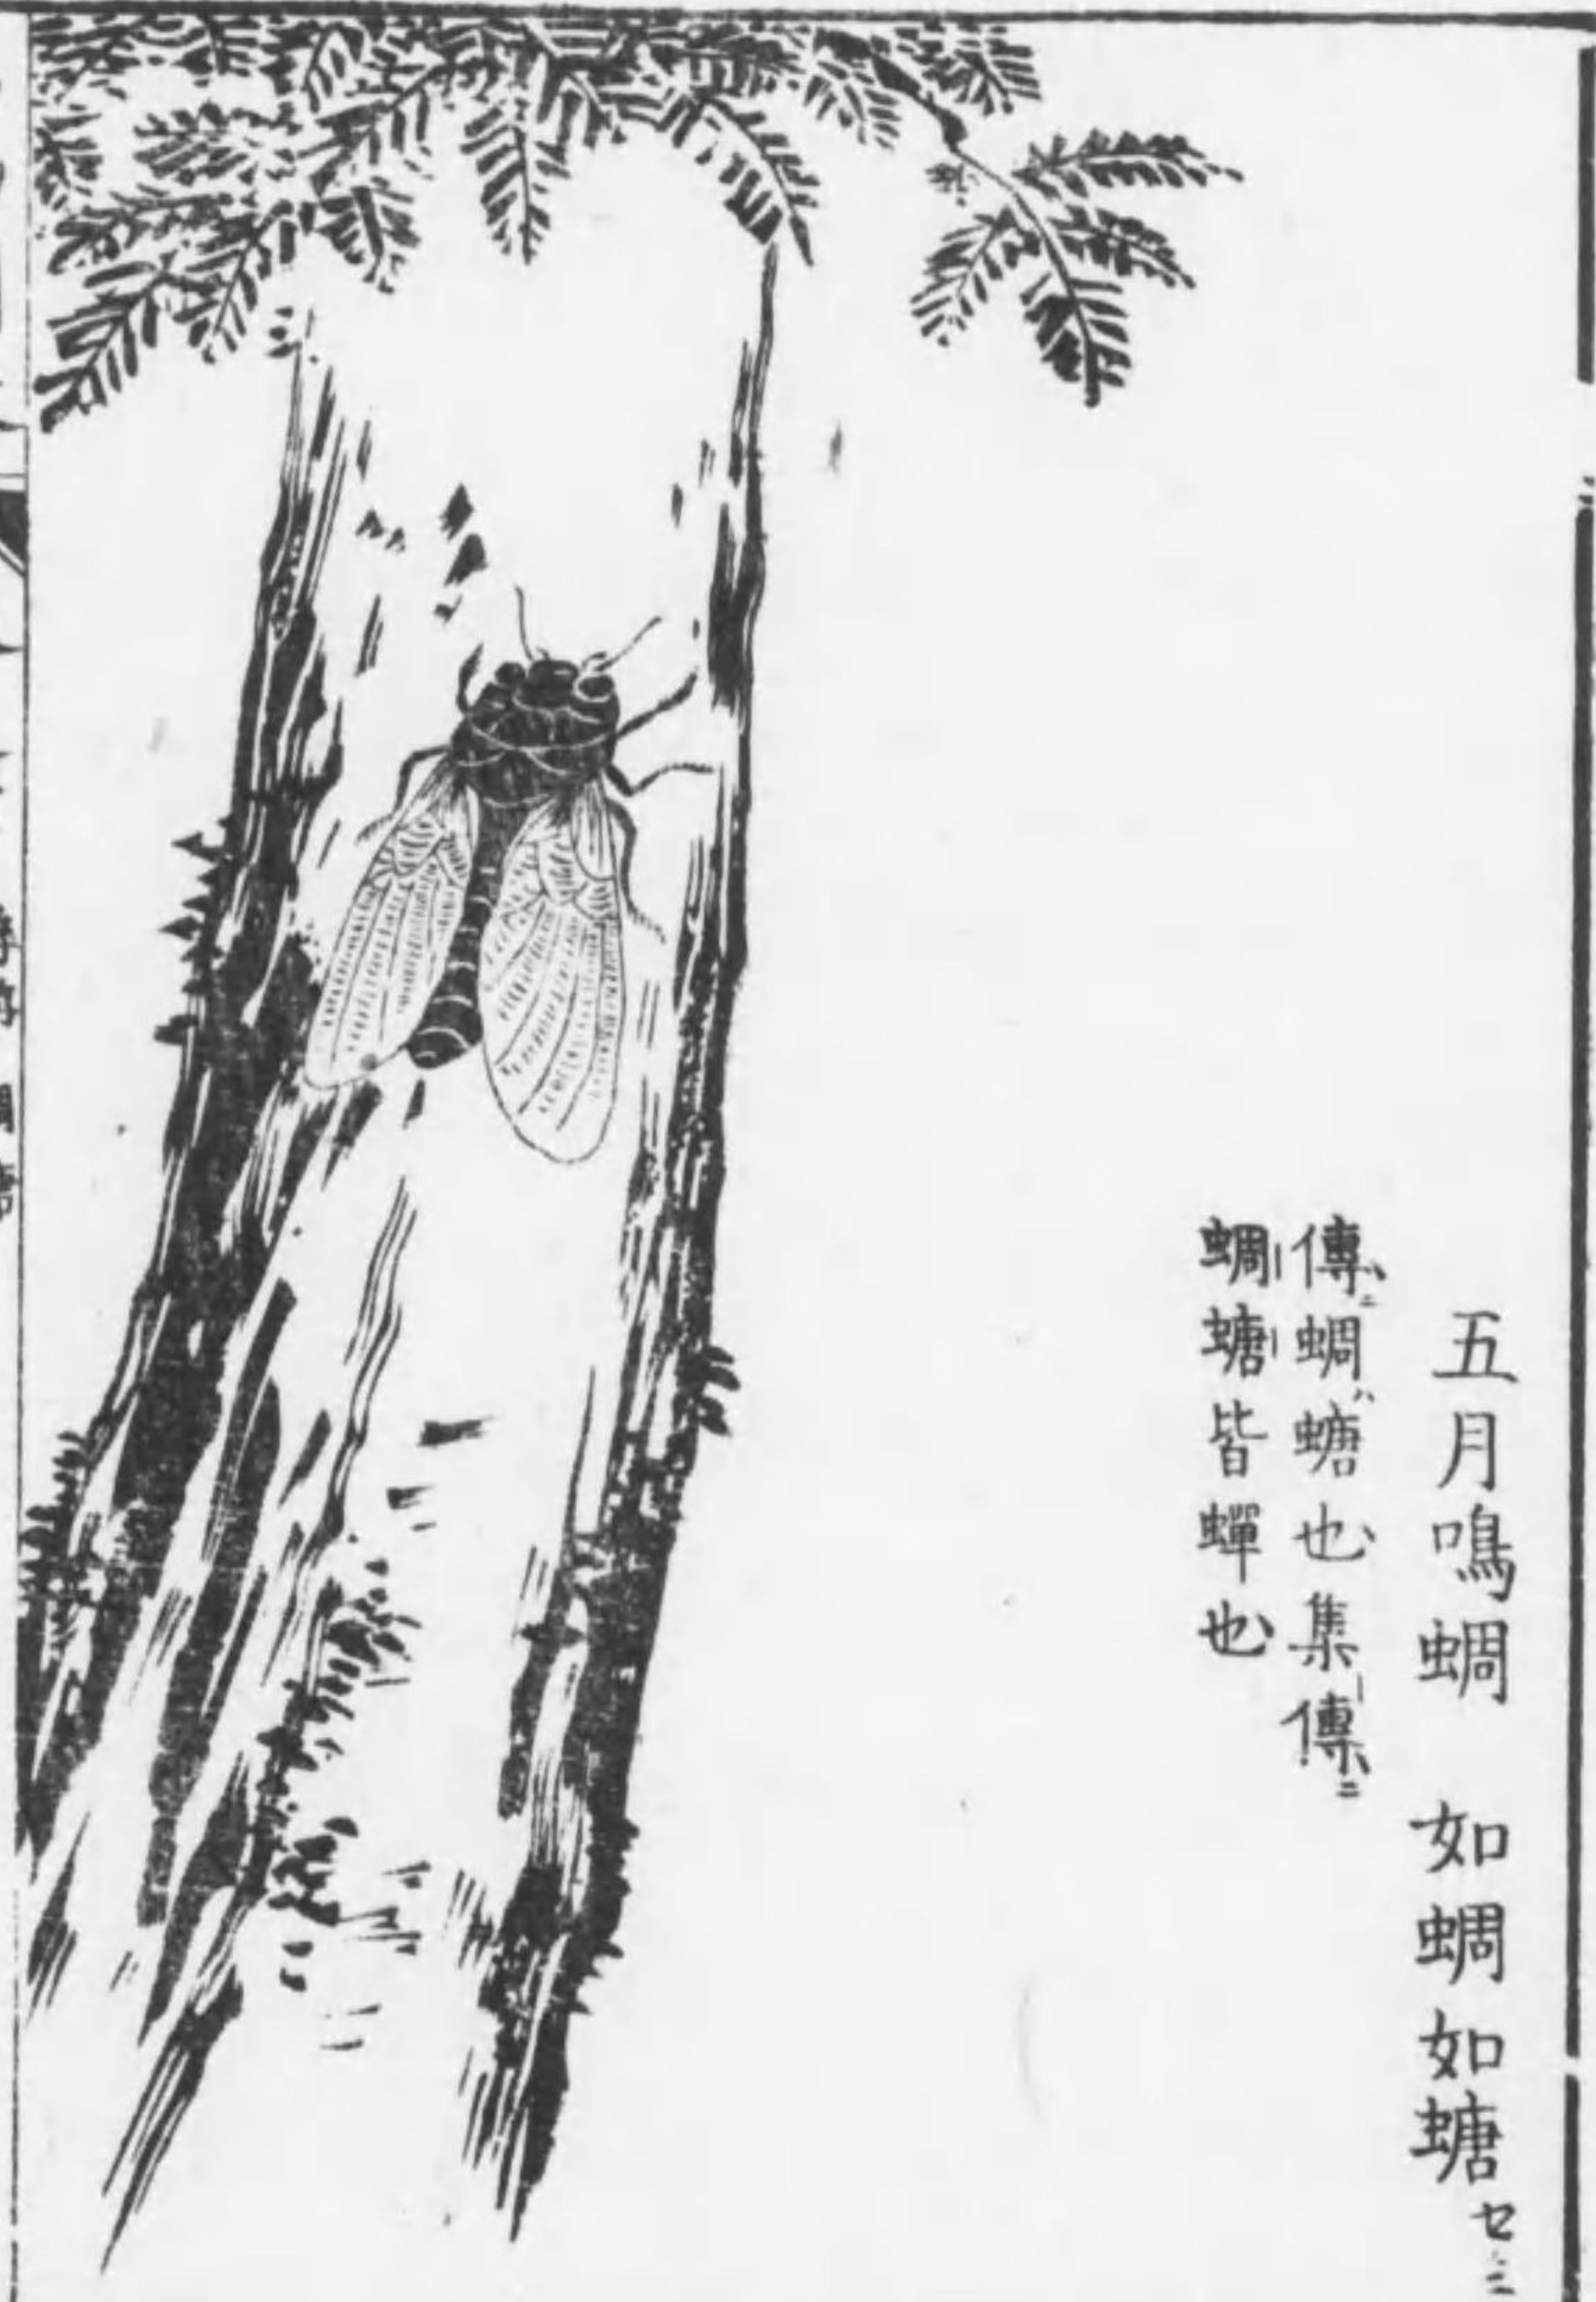 五月鳴蜩　如蜩如螗セミ
傳ニ蜩ハ螗也集傳ニ
蜩螗皆蟬也